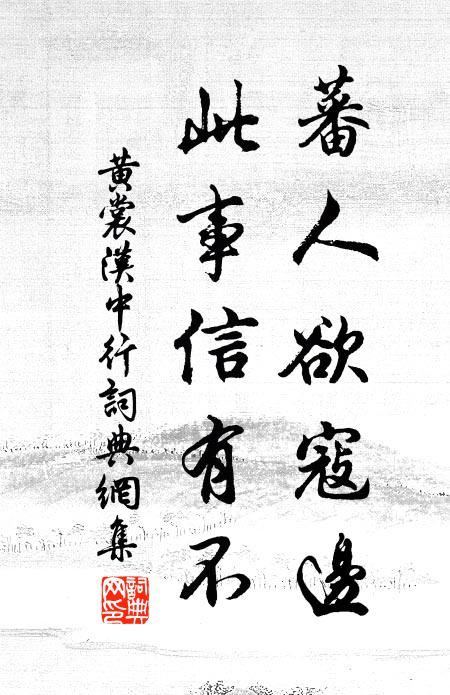 蕃人欲寇邊
此事信有不
黃裳漢中行詞典網集
詞典
网